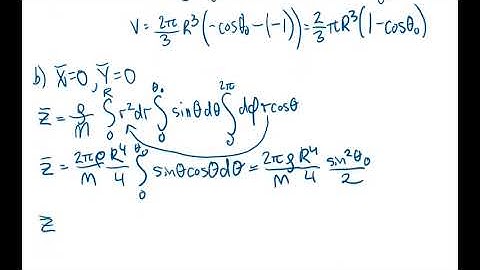 V = 2π/3 R³(-cosθ₀-(-1)) = 2/3 πR³(1-cosθ₀)
b) X̄=0, Ȳ=0
Z̄ = ρ/M ∫₀ᴿ r²dr ∫₀^θ₀ sinθdθ ∫₀^2π dφ r cosθ
Z̄ = 2πρ/M R⁴/4 ∫₀^θ₀ sinθcosθdθ = 2πρ/M R⁴/4 sin²θ₀/2
Z̄